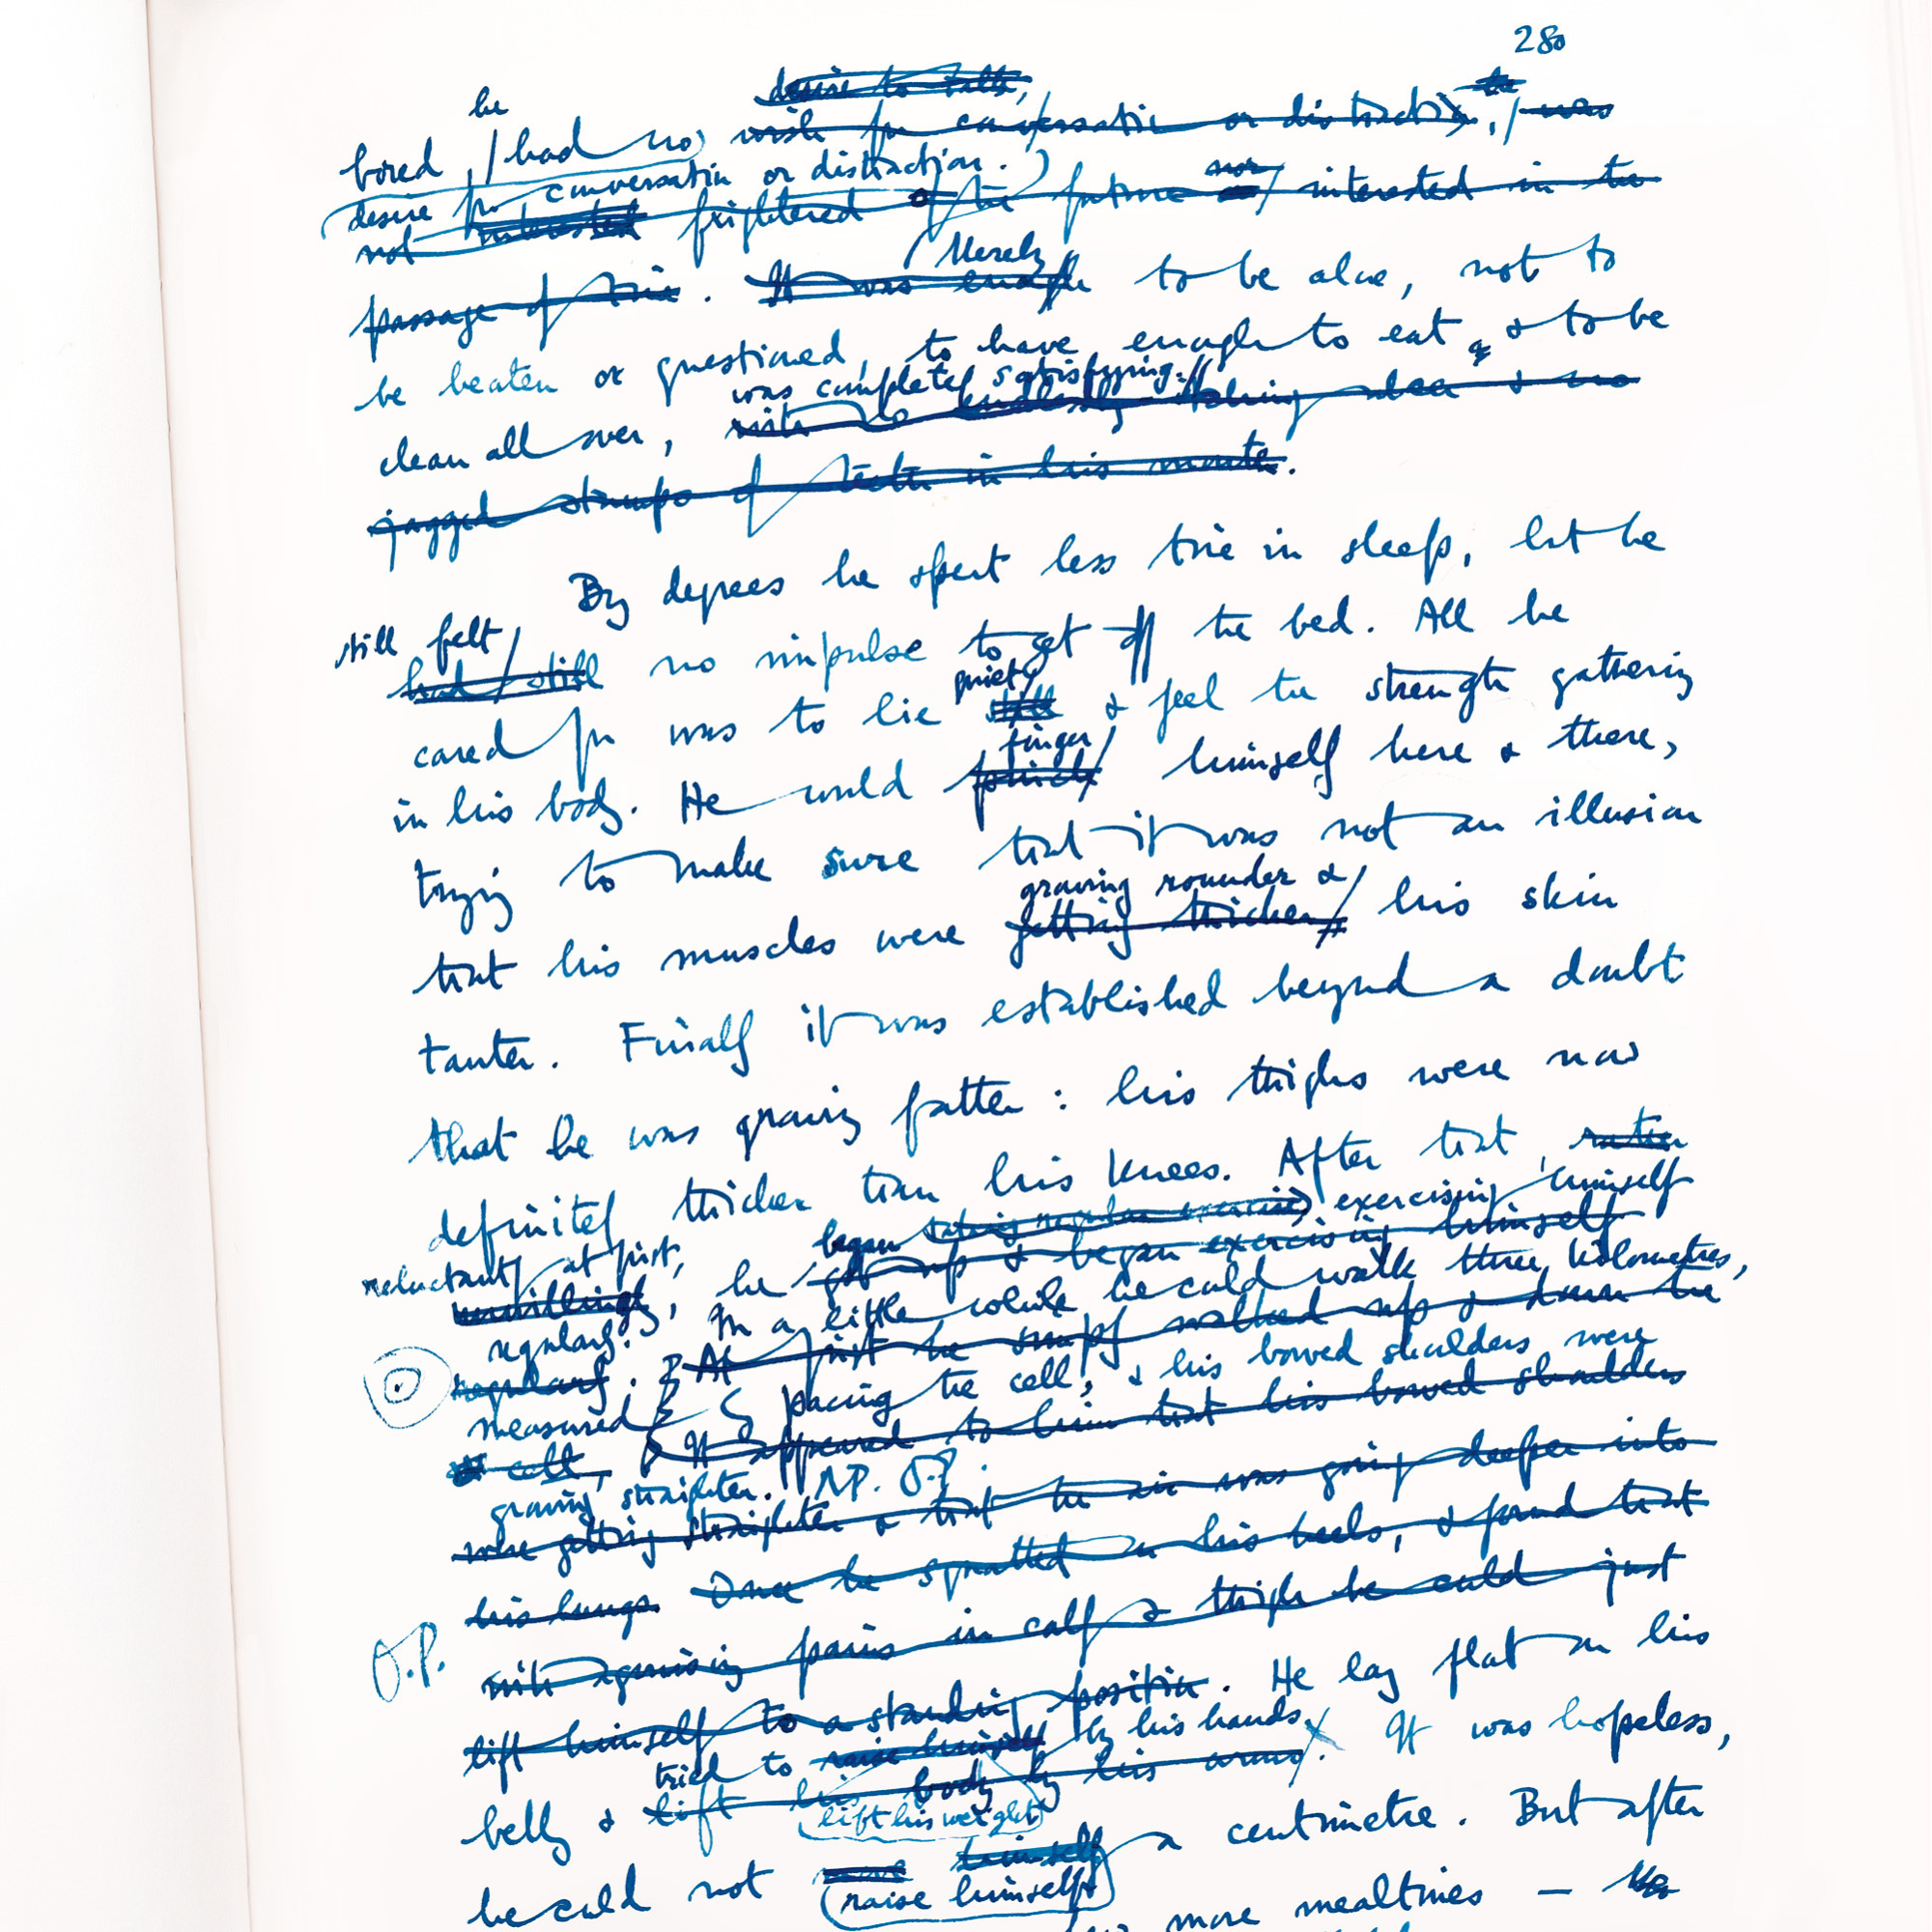 280
desire to talk,
he
bored, had no wish for conversation or distraction, was
desire for conversation or distraction.
not interested frightened of the future nor interested in the
Merely
passage of time. It was enough to be alive, not to
be beaten or questioned, to have enough to eat, & to be
was completely satisfying.
clean all over, with no endlessly aching ulcer & no
jagged stumps of teeth in his mouth.
By degrees he spent less time in sleep, but he
still felt
had still no impulse to get off the bed. All he
quiet
cared for was to lie still & feel the strength gathering
finger
in his body. He would pinch himself here & there,
trying to make sure that it was not an illusion
growing rounder &
that his muscles were getting thicker his skin
tauter. Finally it was established beyond a doubt
that he was growing fatter: his thighs were now
definitely thicker than his knees. After that, rather
began taking regular exercise exercising himself
reluctantly at first,
unwillingly, he got up & began exercising himself
regularly. In a little while he could walk three kilometres,
regularly. At first he simply walked up & down the
measured pacing the cell, & his bowed shoulders were
cell, It appeared to him that his bowed shoulders
growing straighter. NP. O.P.
were getting straighter & that the air was going deeper into
his lungs. Once he squatted on his heels, & found that
O.P.
with agonising pains in calf & thigh he could just
lift himself to a standing position. He lay flat on his
tried to raise himself by his hands.
belly & lift his body by his arms. It was hopeless,
lift his weight
he could not himself a centimetre. But after
raise himself
more mealtimes —